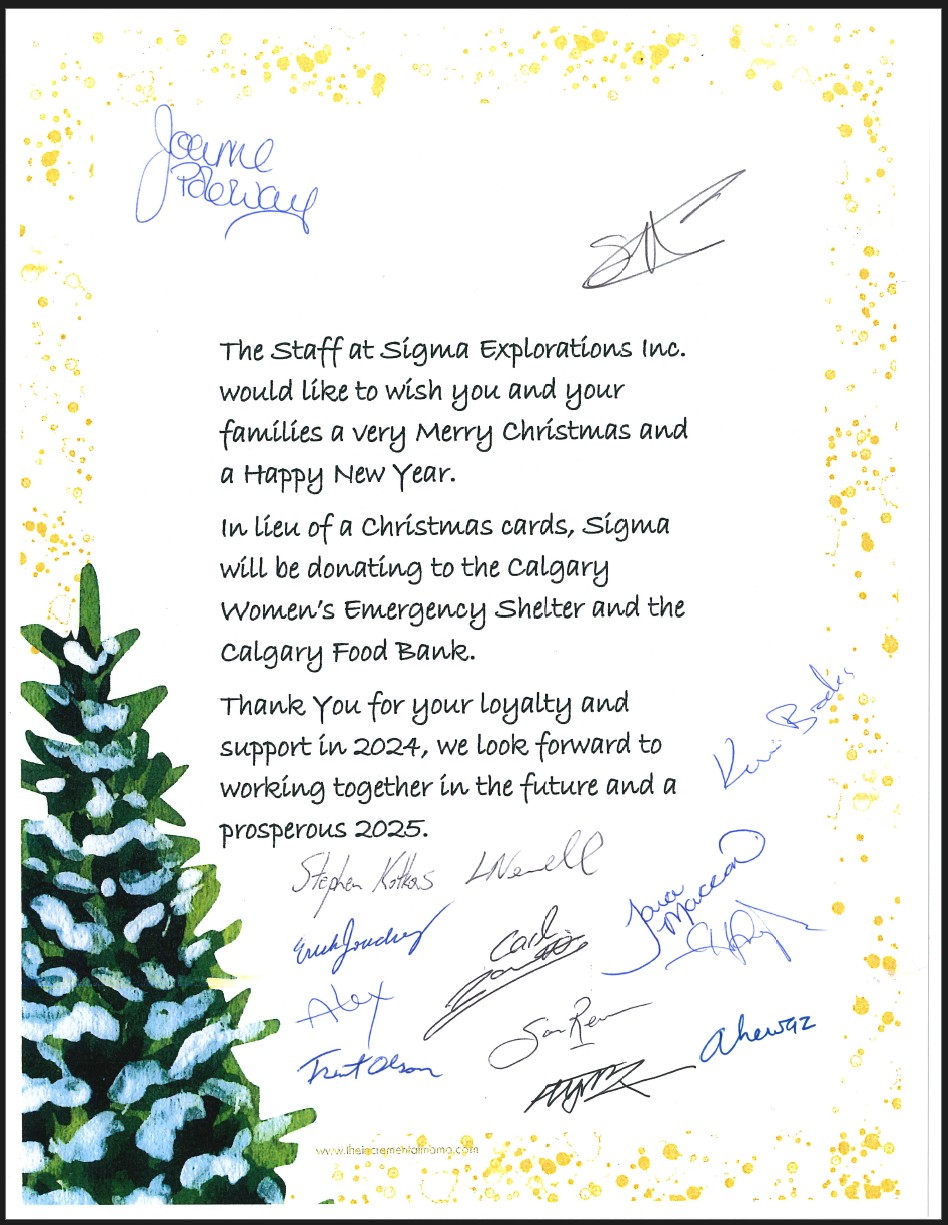 Joanne
The Staff at Sigma Explorations Inc.
would like to wish you and your
families a very Merry Christmas and
a Happy New Year.
In lieu of a Christmas cards, Sigma
will be donating to the Calgary
Women's Emergency Shelter and the
Calgary Food Bank.
Thank You for your loyalty and
support in 2024, we look forward to
working together in the future and a
prosperous 2025.
Stephen Kotkas
Carl
Alex
Trent Olson
www.theincrementalmama.com